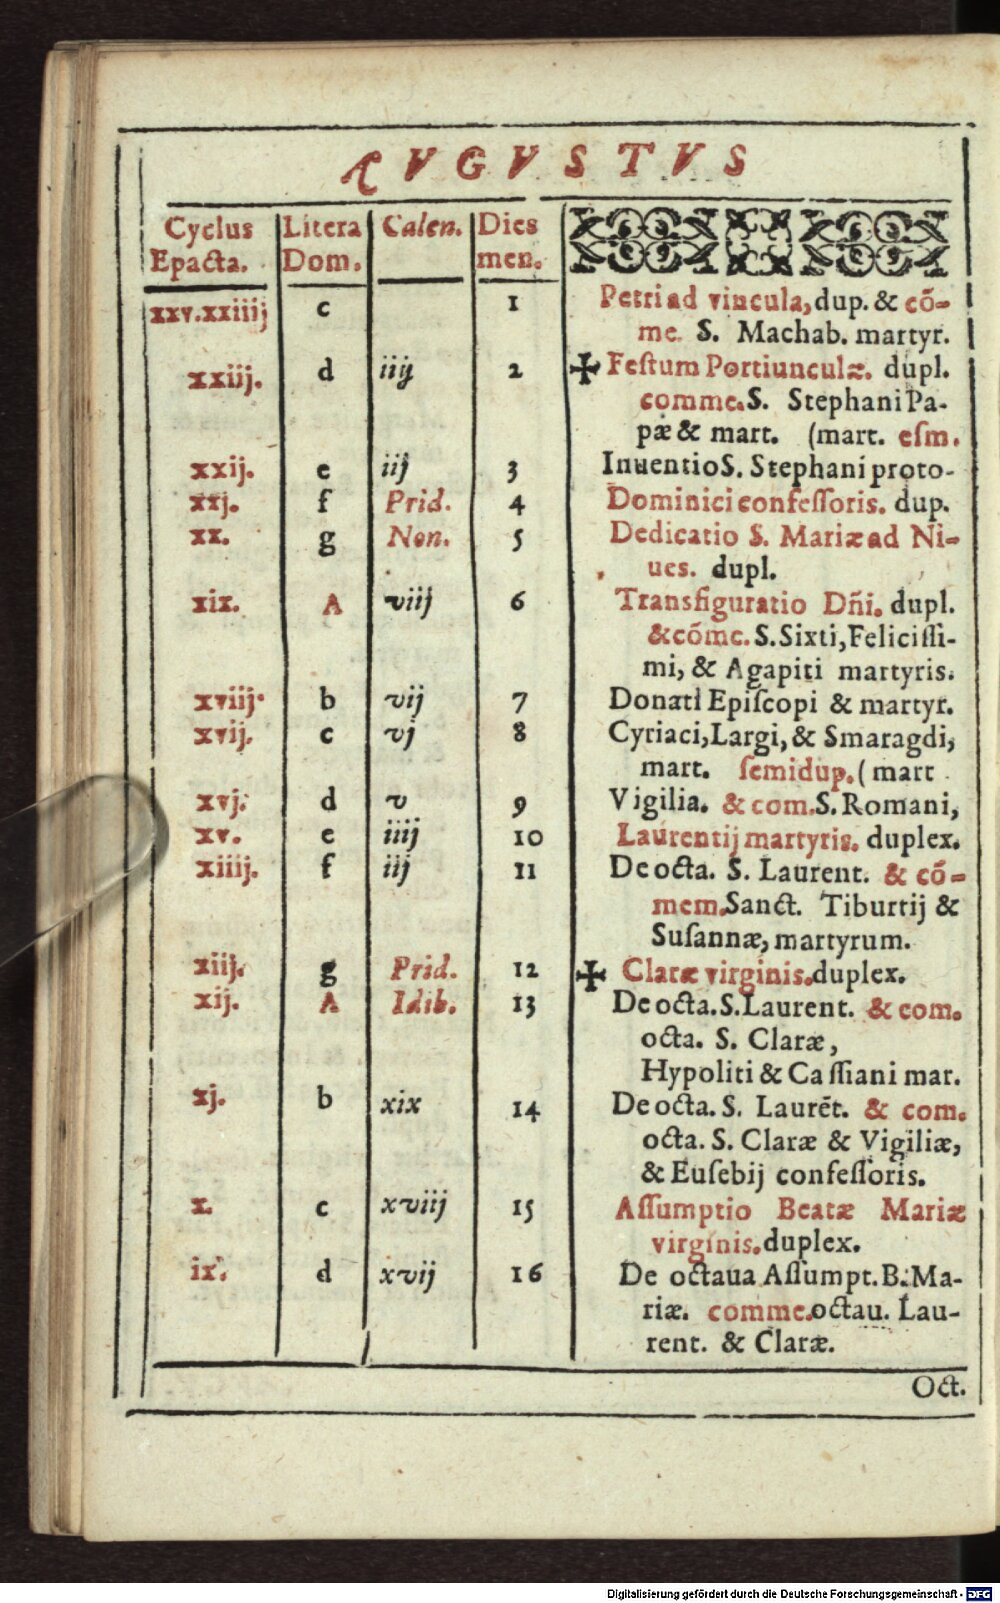 AVGVSTVS
Cyclus Litera Calen. Dies
Epacta. Dom. men.
xxv.xxiiij c 1 Petri ad vincula, dup. & cõ-
me. S. Machab. martyr.
xxiij. d iiij 2 ✠ Feſtum Portiunculæ. dupl.
comme. S. Stephani Pa-
pæ & mart. (mart. eſm.
xxij. e iij 3 Inuentio S. Stephani proto-
xxj. f Prid. 4 Dominici confeſſoris. dup.
xx. g Non. 5 Dedicatio S. Mariæ ad Ni-
ues. dupl.
xix. A viij 6 Transfiguratio Dñi. dupl.
& cõme. S. Sixti, Feliciſſi-
mi, & Agapiti martyris.
xviij. b vij 7 Donati Epiſcopi & martyr.
xvij. c vj 8 Cyriaci, Largi, & Smaragdi,
mart. ſemidup. (mart
xvj. d v 9 Vigilia. & com. S. Romani,
xv. e iiij 10 Laurentij martyris. duplex.
xiiij. f iij 11 De octa. S. Laurent. & cõ-
mem. Sanct. Tiburtij &
Suſannæ, martyrum.
xiij. g Prid. 12 ✠ Claræ virginis. duplex.
xij. A Idib. 13 De octa. S. Laurent. & com.
octa. S. Claræ,
Hypoliti & Caſſiani mar.
xj. b xix 14 De octa. S. Laurẽt. & com.
octa. S. Claræ & Vigiliæ,
& Euſebij confeſſoris.
x. c xviij 15 Aſſumptio Beatæ Mariæ
virginis. duplex.
ix. d xvij 16 De octaua Aſſumpt. B. Ma-
riæ. comme. octau. Lau-
rent. & Claræ.
Oct.
Digitalisierung gefördert durch die Deutsche Forschungsgemeinschaft - DFG